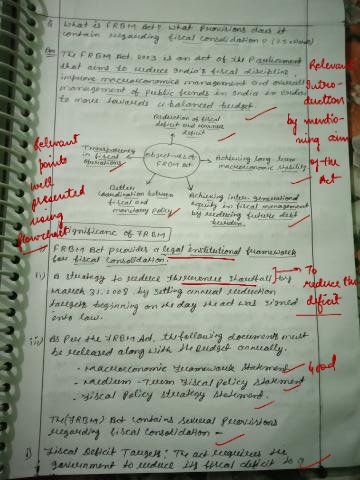 Q What is FRBM Act? What provisions does it
contain regarding fiscal consolidation? (
Ans The FRBM Act 2003 is an act of the Parliament
that aims to reduce India's fiscal discipline
improve macroeconomics management and overall
management of Public funds in India in order
to move towards a balanced budget.
Reduction of fiscal
deficit and revenue
deficit
Transparency
in fiscal
operations
Objectives of
FRBM Act
Achieving long term
macroeconomic stability
Better
coordination between
fiscal and
monetary Policy
Achieving inter-generational
equity in fiscal management
by reducing future debt
burden.
Relevant
Intro-
duction
by mentio-
ning aim
of the
Act
Relevant
points
well
presented
using
flowchart
Significance of FRBM
FRBM Act provides a legal institutional framework
for fiscal consolidation.
ii) A strategy to reduce the revenue shortfall by
March 31, 2008 by setting annual reduction
targets beginning on the day the act was signed
into law.
To
reduce the
deficit
iii) As per the FRBM Act, the following documents must
be released along with the Budget annually.
- Macroeconomic Framework Statement
- Medium-Term Fiscal Policy Statement
- Fiscal Policy strategy Statement.
Good
The (FRBM) Act contains several Provisions
regarding fiscal consolidation -
i) Fiscal Deficit Targets: The act requires the
government to reduce its fiscal deficit to a